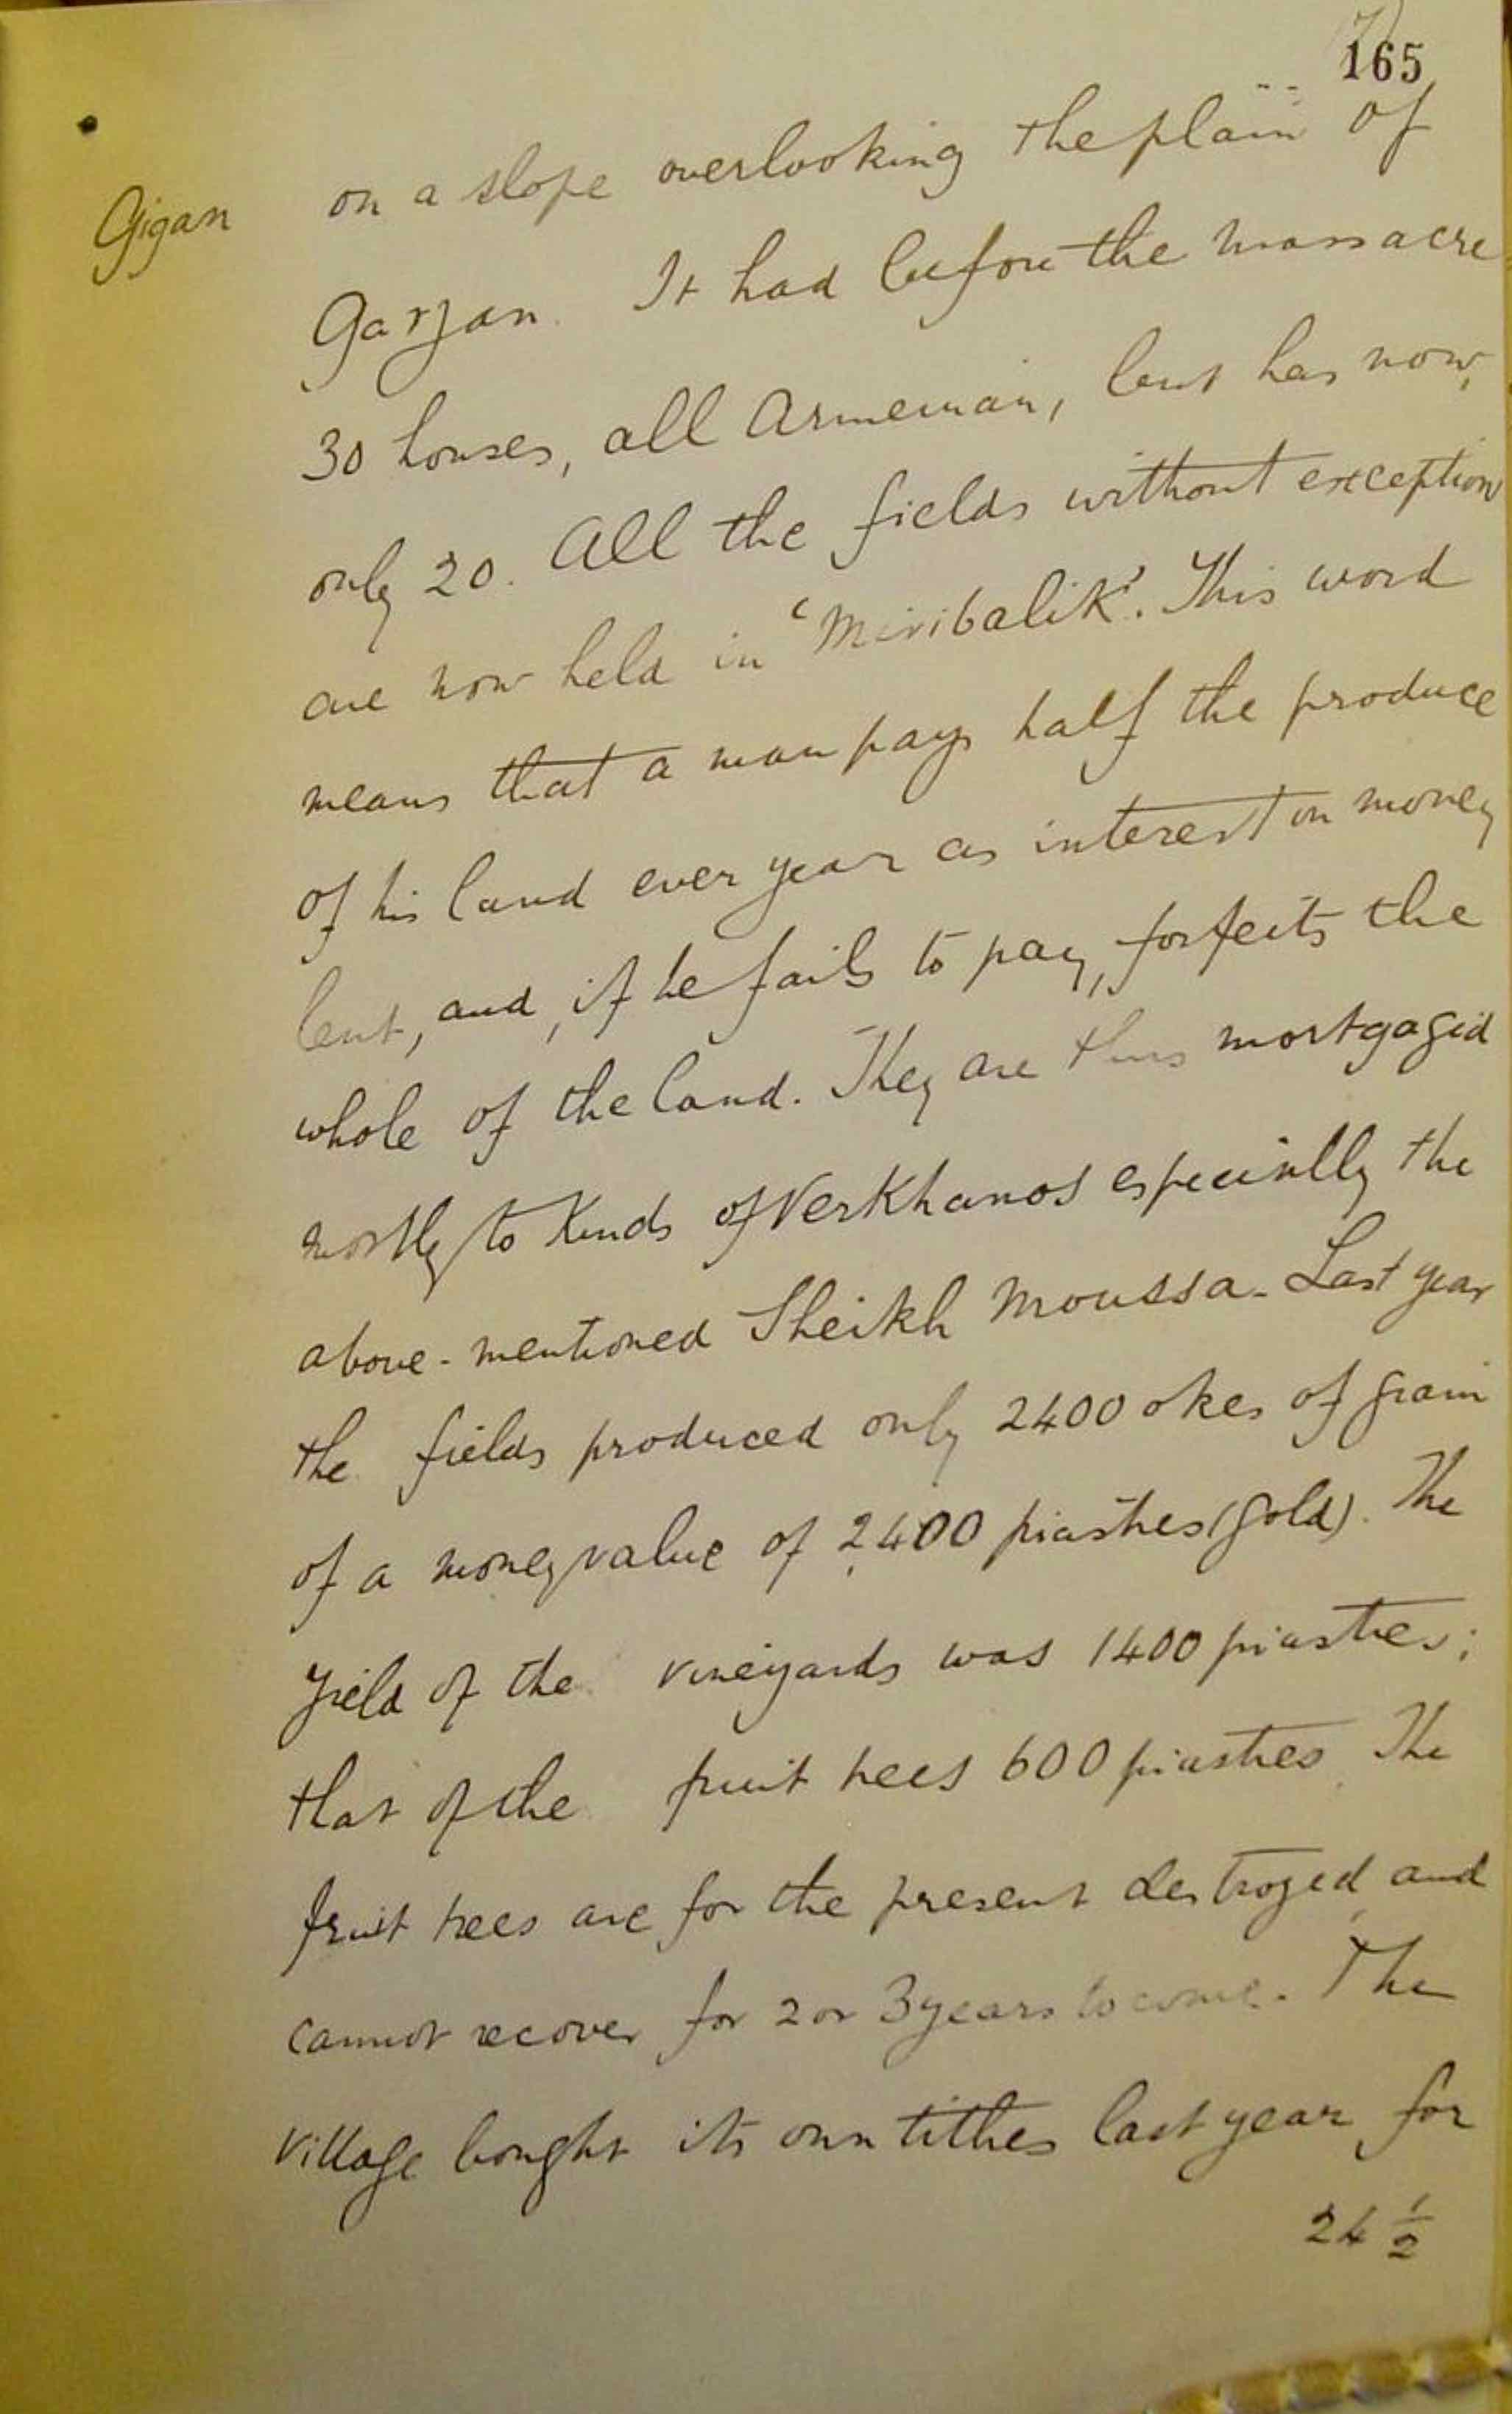 165
Gigan
on a slope overlooking the plain of
Garzan. It had before the massacre
30 houses, all Armenian, but has now,
only 20. All the fields without exception
are now held in 'Miribalik'. This word
means that a man pays half the produce
of his land ever year as interest on money
lent, and, if he fails to pay, forfeits the
whole of the land. They are thus mortgaged
mostly to Kurds of Verkhanos especially the
above-mentioned Sheikh Moussa. Last year
the fields produced only 2400 okes of grain
of a money value of 2400 piastres (gold). The
yield of the vineyards was 1400 piastres;
that of the fruit trees 600 piastres. The
fruit trees are for the present destroyed and
cannot recover for 2 or 3 years to come. The
village bought its own tithes last year for
24 1/2